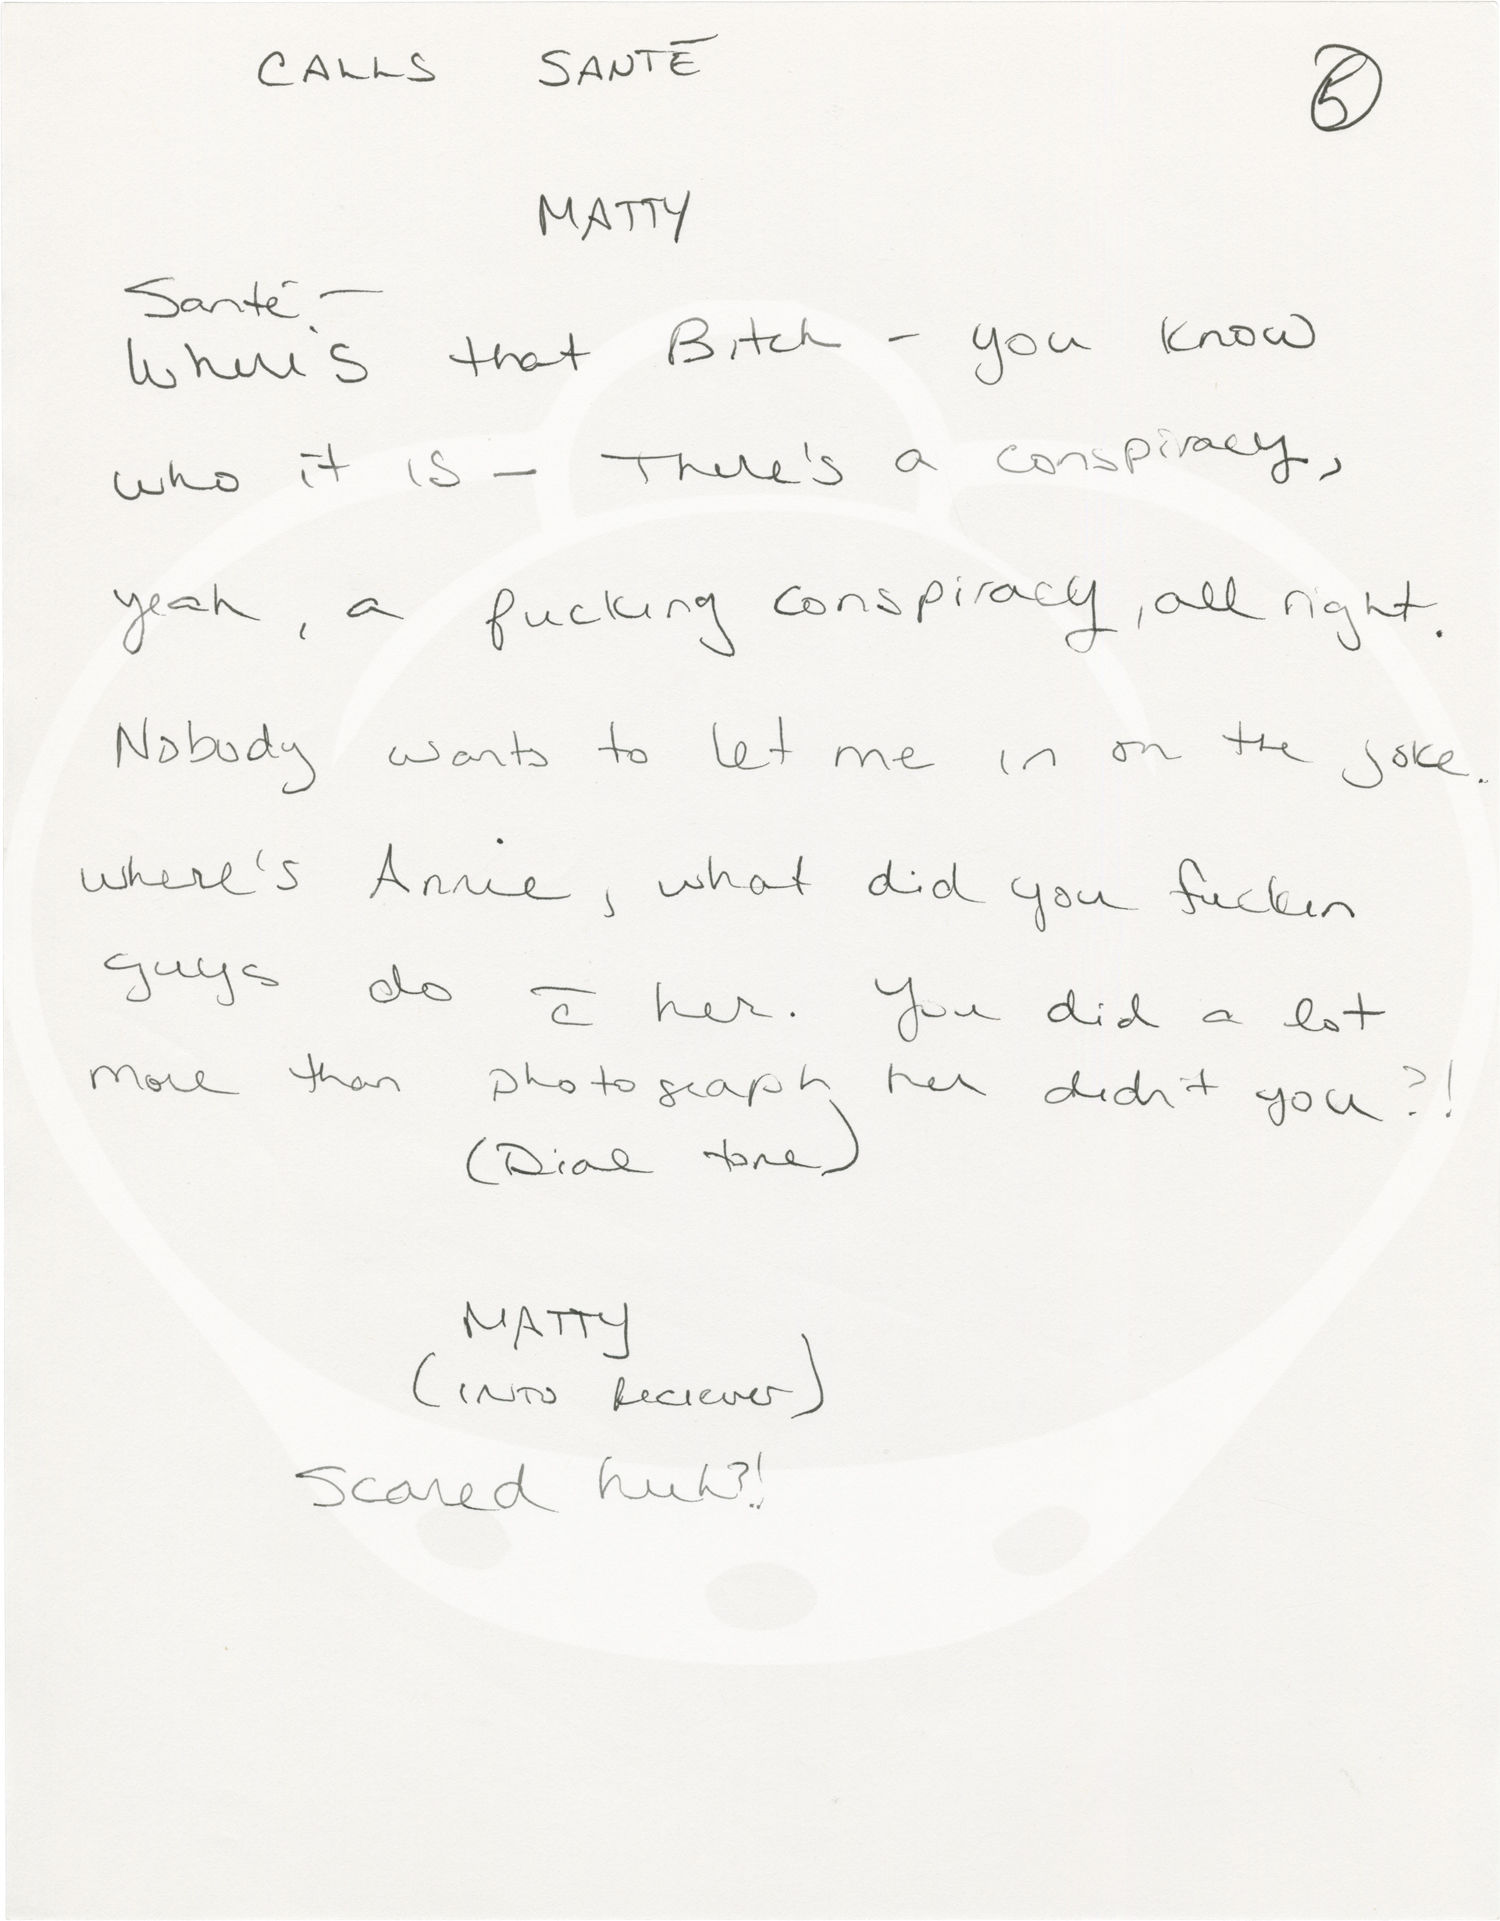 CALLS SANTÉ
5
MATTY
Santé. —
Where's that Bitch - you know
who it is — There's a conspiracy,
yeah, a fucking conspiracy, all right.
Nobody wants to let me in on the joke.
where's Annie, what did you fuckin
guys do c̄ her. You did a lot
more than photograph her didn't you?!
(Dial tone)
MATTY
(INTO Reciever)
Scared huh?!